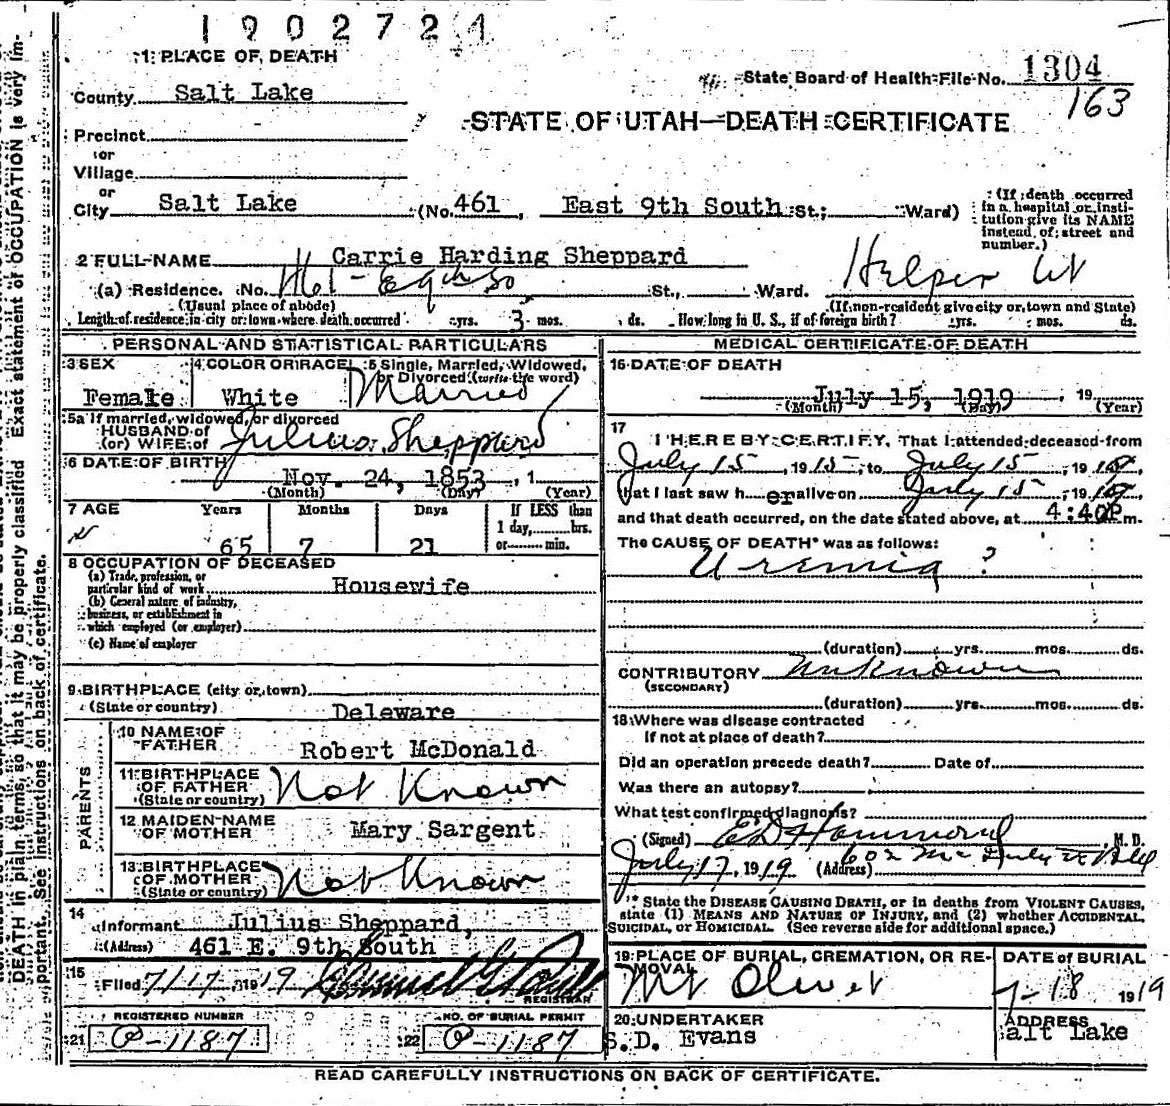 1902724
1 PLACE OF DEATH
State Board of Health File No. 1304
163
County Salt Lake
STATE OF UTAH—DEATH CERTIFICATE
Precinct
or
Village
or
City Salt Lake (No. 461, East 9th South St.; Ward)
(If death occurred in a hospital or institution give its NAME instead of street and number.)
2 FULL NAME Carrie Harding Sheppard
(a) Residence. No. St., Ward. Helper Ut
(Usual place of abode) (If non-resident give city or town and State)
Length of residence in city or town where death occurred yrs. 3 mos. ds. How long in U. S., if of foreign birth? yrs. mos. ds.
PERSONAL AND STATISTICAL PARTICULARS
3 SEX Female
4 COLOR OR RACE White
5 Single, Married, Widowed, or Divorced (write the word) Married
5a If married, widowed, or divorced
HUSBAND of
(or) WIFE of Julius Sheppard
6 DATE OF BIRTH Nov. 24, 1853, 1
(Month) (Day) (Year)
7 AGE Years Months Days If LESS than
1 day, hrs.
or min.
65 7 21
8 OCCUPATION OF DECEASED
(a) Trade, profession, or
particular kind of work Housewife
(b) General nature of industry,
business, or establishment in
which employed (or employer)
(c) Name of employer
9 BIRTHPLACE (city or town)
(State or country) Deleware
PARENTS
10 NAME OF FATHER Robert McDonald
11 BIRTHPLACE OF FATHER (State or country) Not Known
12 MAIDEN NAME OF MOTHER Mary Sargent
13 BIRTHPLACE OF MOTHER (State or country) Not Known
14 Informant Julius Sheppard,
(Address) 461 E. 9th South
15 Filed 7/17 1919
REGISTRAR
REGISTERED NUMBER
21 P-1187
NO. OF BURIAL PERMIT
22 P-1187
MEDICAL CERTIFICATE OF DEATH
16 DATE OF DEATH
July 15, 1919, 19
(Month) (Day) (Year)
17
I HEREBY CERTIFY, That I attended deceased from
July 15, 19 to July 15, 19
that I last saw her alive on July 15, 19
and that death occurred, on the date stated above, at 4:40P m.
The CAUSE OF DEATH* was as follows:
Uremia ?
(duration) yrs. mos. ds.
CONTRIBUTORY Unknown
(SECONDARY)
(duration) yrs. mos. ds.
18 Where was disease contracted
If not at place of death?
Did an operation precede death? Date of
Was there an autopsy?
What test confirmed diagnosis?
(Signed) E D Hammond, M. D.
July 17, 1919 (Address) 602
* State the DISEASE CAUSING DEATH, or in deaths from VIOLENT CAUSES,
state (1) MEANS AND NATURE OF INJURY, and (2) whether ACCIDENTAL,
SUICIDAL, or HOMICIDAL. (See reverse side for additional space.)
19 PLACE OF BURIAL, CREMATION, OR REMOVAL Mt Olivet
DATE of BURIAL 7-18 1919
20 UNDERTAKER
S.D. Evans
ADDRESS
alt Lake
READ CAREFULLY INSTRUCTIONS ON BACK OF CERTIFICATE.
DEATH in plain terms, so that it may be properly classified. Exact statement of OCCUPATION is very important. See instructions on back of certificate.